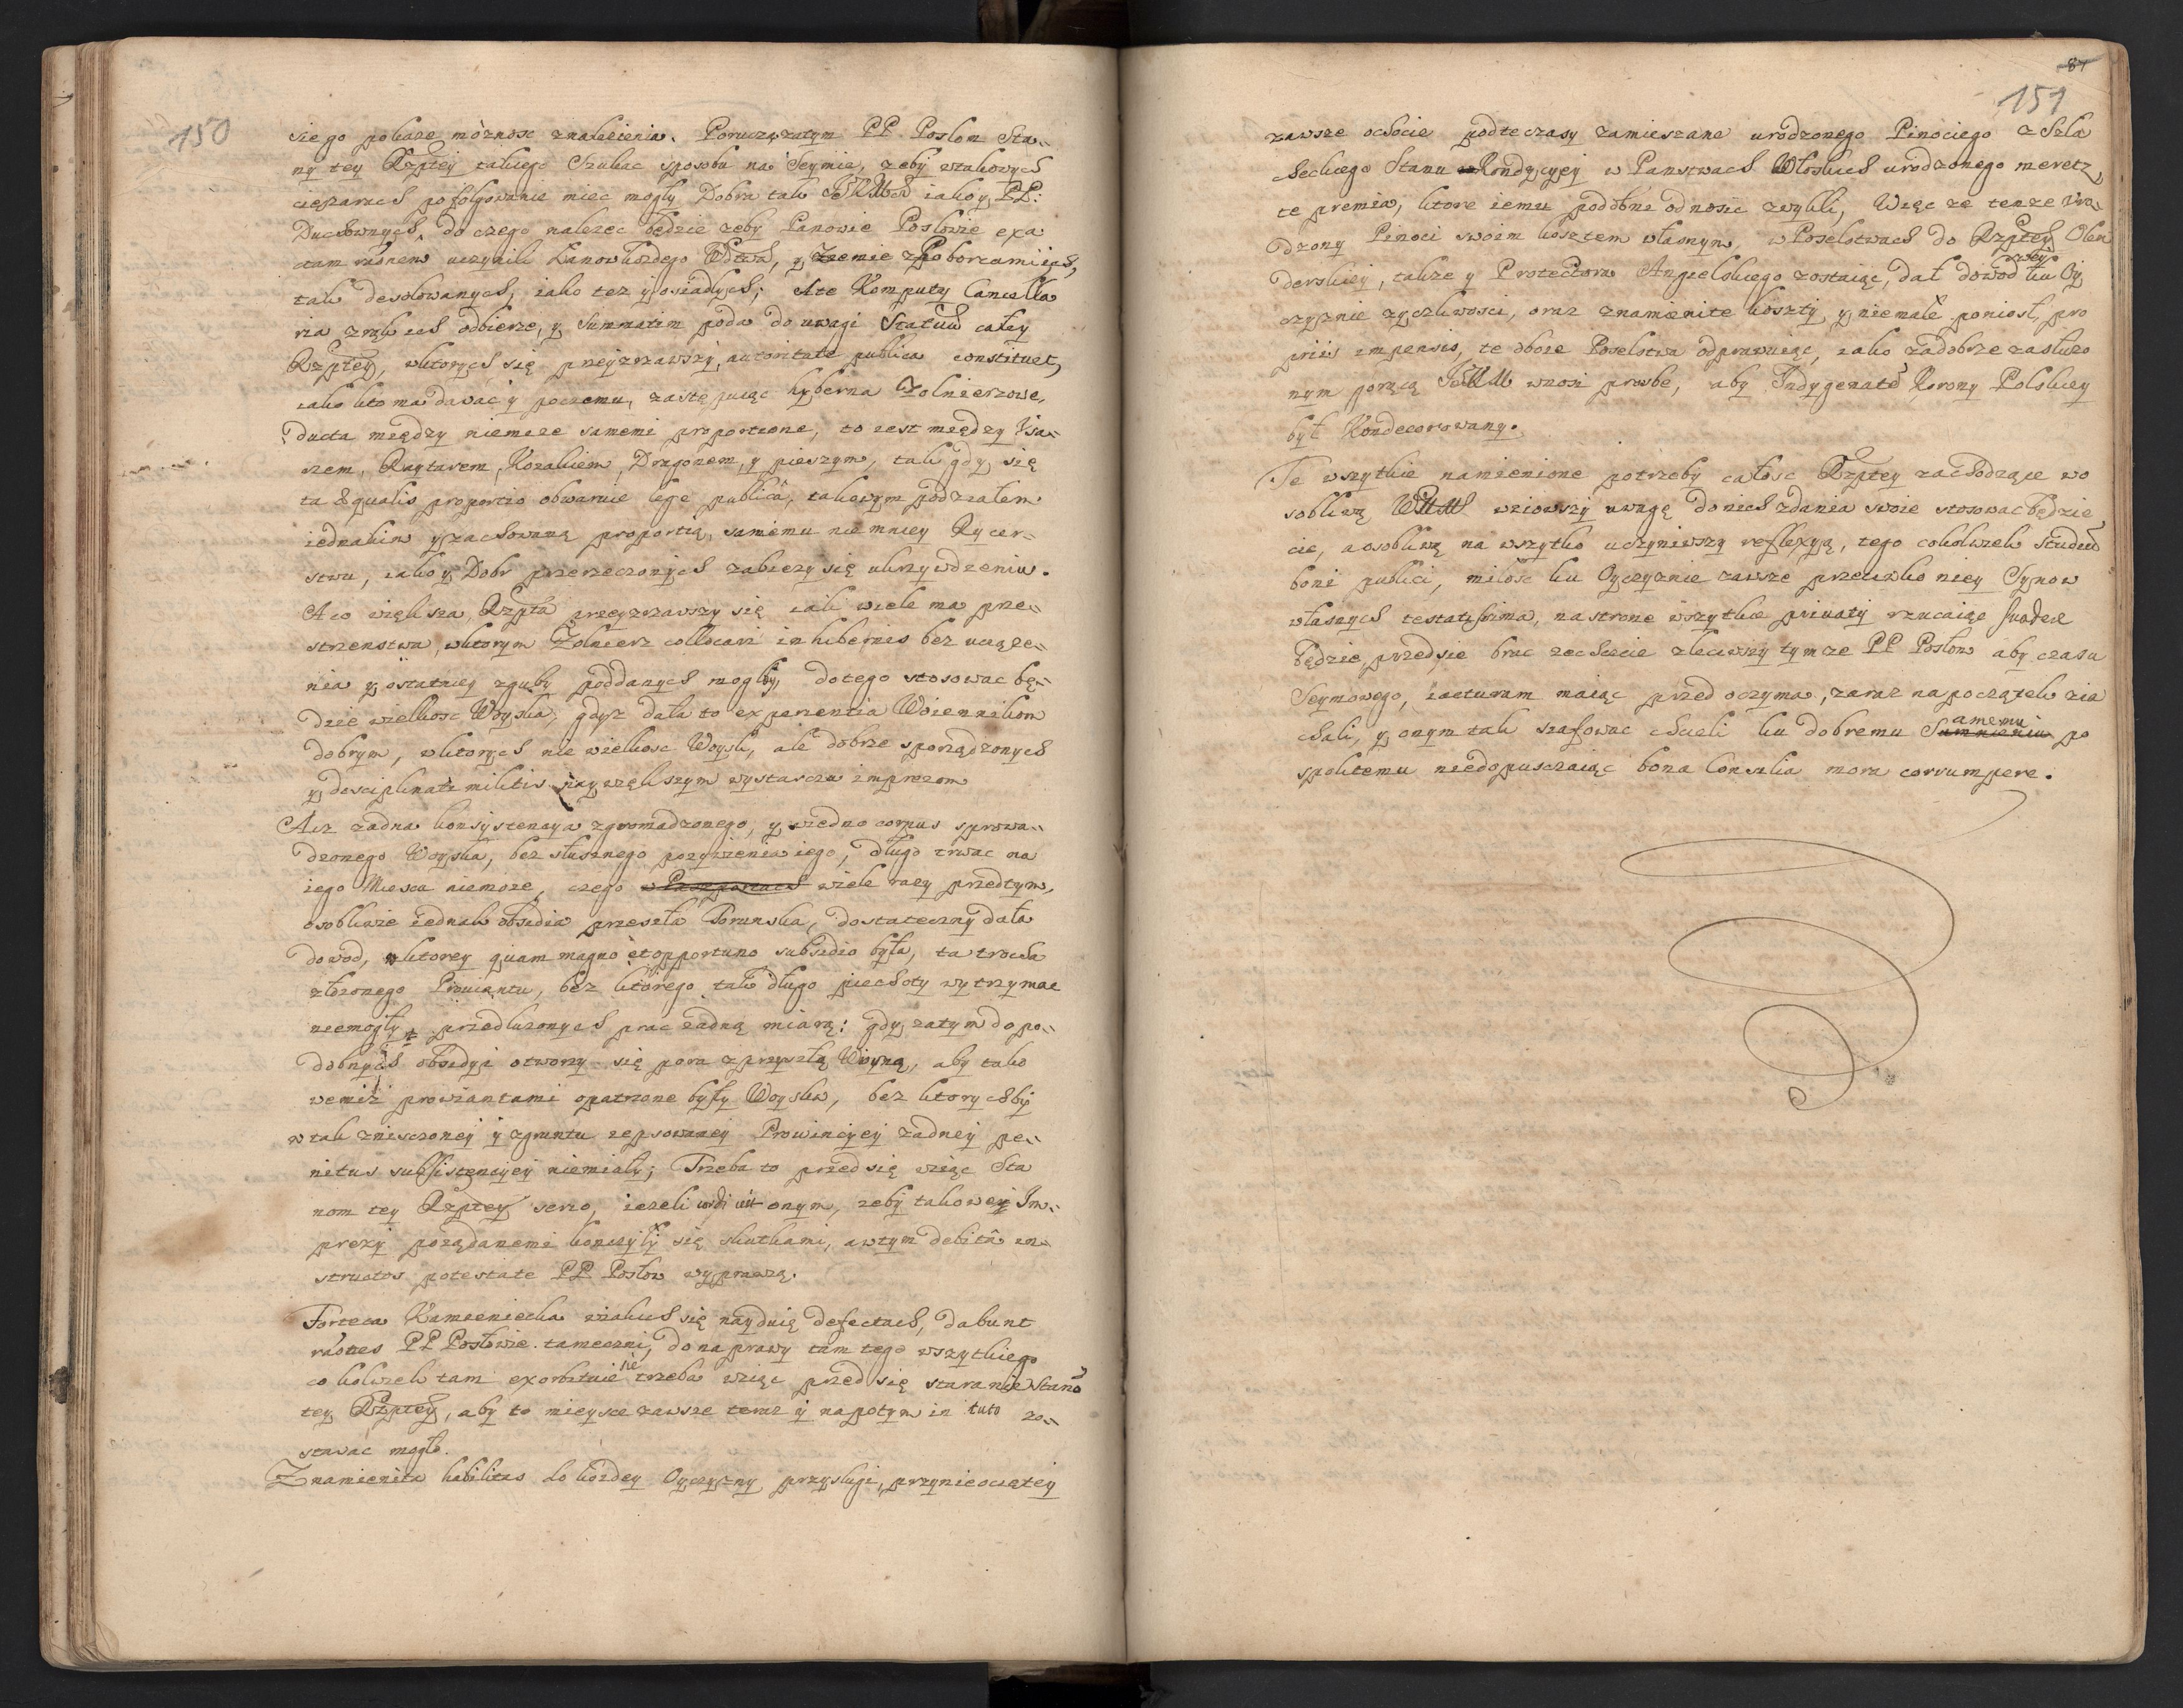 150
siego pokaże możnosc znalezienia. Poruczą zatym PP. Posłom Sta-
ny tey Rzptey takiego szukac sposobu na Seymie, zeby wtakowych
cięzarach pofolgowanie miec mogły Dobra tak JKMci iako y PP:
Duchownych, do czego nalezec będzie zeby Panowie Posłowie exa
ctam raonem uczynili Łanow kozdego Wdztwa, y Ziemie z Poborcami ich,
tak desolowanych, iako tez y osiadłych; Ate Komputy Cancella
ria z rąk ich odbierze, y summatim poda do uwagi Statuu całey
Rzptey, wktorych się przeyzrzawszy, autoritate publica constituet,
iako kto ma dawac y poczemu, zastępuiąc hyberna Zołnierzowe,
ducta między niemize samemi proportione, to iest między Usa-
rzem, Raytarem, Kozakiem, Dragonem, y pieszym, tak gdy się
ta æqualis proportio obwaruie lege publicâ, takowym podziałem
iednakim y zachowaną proportią, samemu niemniey Rycer-
stwu, iako y Dobr przerzeczonych zabiezy się ukrzywdzeniu.
A co większa, Rzpta przeyzrzawszy się iak wiele ma prze-
strzenstwa, wktorym Zołnierz collocari in hibernis bez uciąze-
nia y ostatniey zguby poddanych mogłby, do tego stosowac bę-
dzie wielkosc Woyska, gdyz dała to experientia Woiennikom
dobrym, wktorych nie wielkosc Woysk, ale dobrze sporządzonych
y desciplinate militis naywiększym wystarcza imprezom
Asz zadna konsystencya zgromadzonego, y wiedno corpus sprowa-
dzonego Woyska, bez słusznego pozywienia iego, długo trwac na
iego Miesca niemoze, czego wiele razy przedtym,
osobliwie iednak obsidia przeszła Torunska, dostateczny dała
dowod, wktorey quam magno et opportuno subsidio była, ta trocha
złozonego Prowiantu, bez ktorego tak długo piechoty wytrzymac
niemogły przedłuzonych prac zadną miarą: gdy zatym do po-
dobnych obsidyi otworzy się pora z przyszłą Woyną, aby tako
wemiz prowiantami opatrzone były Woyska, bez ktorychby
w tak zniesczoney y zgruntu zepsowaney Prowincyey zadney pe-
nitus subsistencyey niemiały; Trzeba to przed się wziąc Sta
nom tey Rzptey serio, iezeli cordi est onym, zeby takowey Im-
prezy poządanemi konczyły się skutkami, a wtym debitâ in-
structos potestate PP Posłow wyprawzą.
Forteca Kamieniecka wiakich się nayduię defectach, dabunt
raones PP Posłowie tameczni, do naprawy tam tego wszytkiego
cokolwiek tam exorbituie się trzeba wziąc przed się staranie Stano
tey Rzptey, aby to mieysce zawsze teraz y napotym in tuto zo-
stawac mogło.
Znamienita habilitas do kozdey Oyczyzny przysługi, przynieociętey
87
151
zawsze ochocie podteczasy zamieszane urodzonego Pinociego z Szla
checkiego Stanu Kondycyey w Panstwach Włoskich urodzonego meretz
te premia, ktore iemu podobni odnosic zwykli, Więc ze tenze Uro-
dzony Pinoci swoim kosztem własnym, w Poselstwach do Rzptey Olen
derskiey, takze y Protectora Angielskiego zostaiąc, dał dowod swey ku Oy
czyznie zyczliwosci, oraz znamienite koszty y niemałe poniosł, pro
priis impensis, te oboie Poselstwa odprawuiąc, iako zadobrze zasłuzo
nym gorącą JKM wnosi prosbe, aby Indygenate Korony Polskiey
był Kondecorowany.
Te wszytkie namienione potrzeby całosc Rzptey zachodzące wo
sobliwą WMM wziowszy uwagę do nich zdania swoie stosowac będzie
cie, a osobliwą na wszytko uczyniwszy reflexyą, tego cokolwiek studiu
boni publici, miłosc ku Oyczyznie zawsze przeciwko niey Synow
własnych testatissima, na strone wszytkie priuaty rzucaiąc suadere
będzie przedsie brac zechciecie zleciwszy tymze PP Posłom aby czasu
Seymowego, iacturam maiąc przed oczyma, zaraz napoczątek zia
chali, y onym tak szafowac chcieli ku dobremu Samemu po
spolitemu niedopuszczaiąc bona Consilia mora corrumpere.